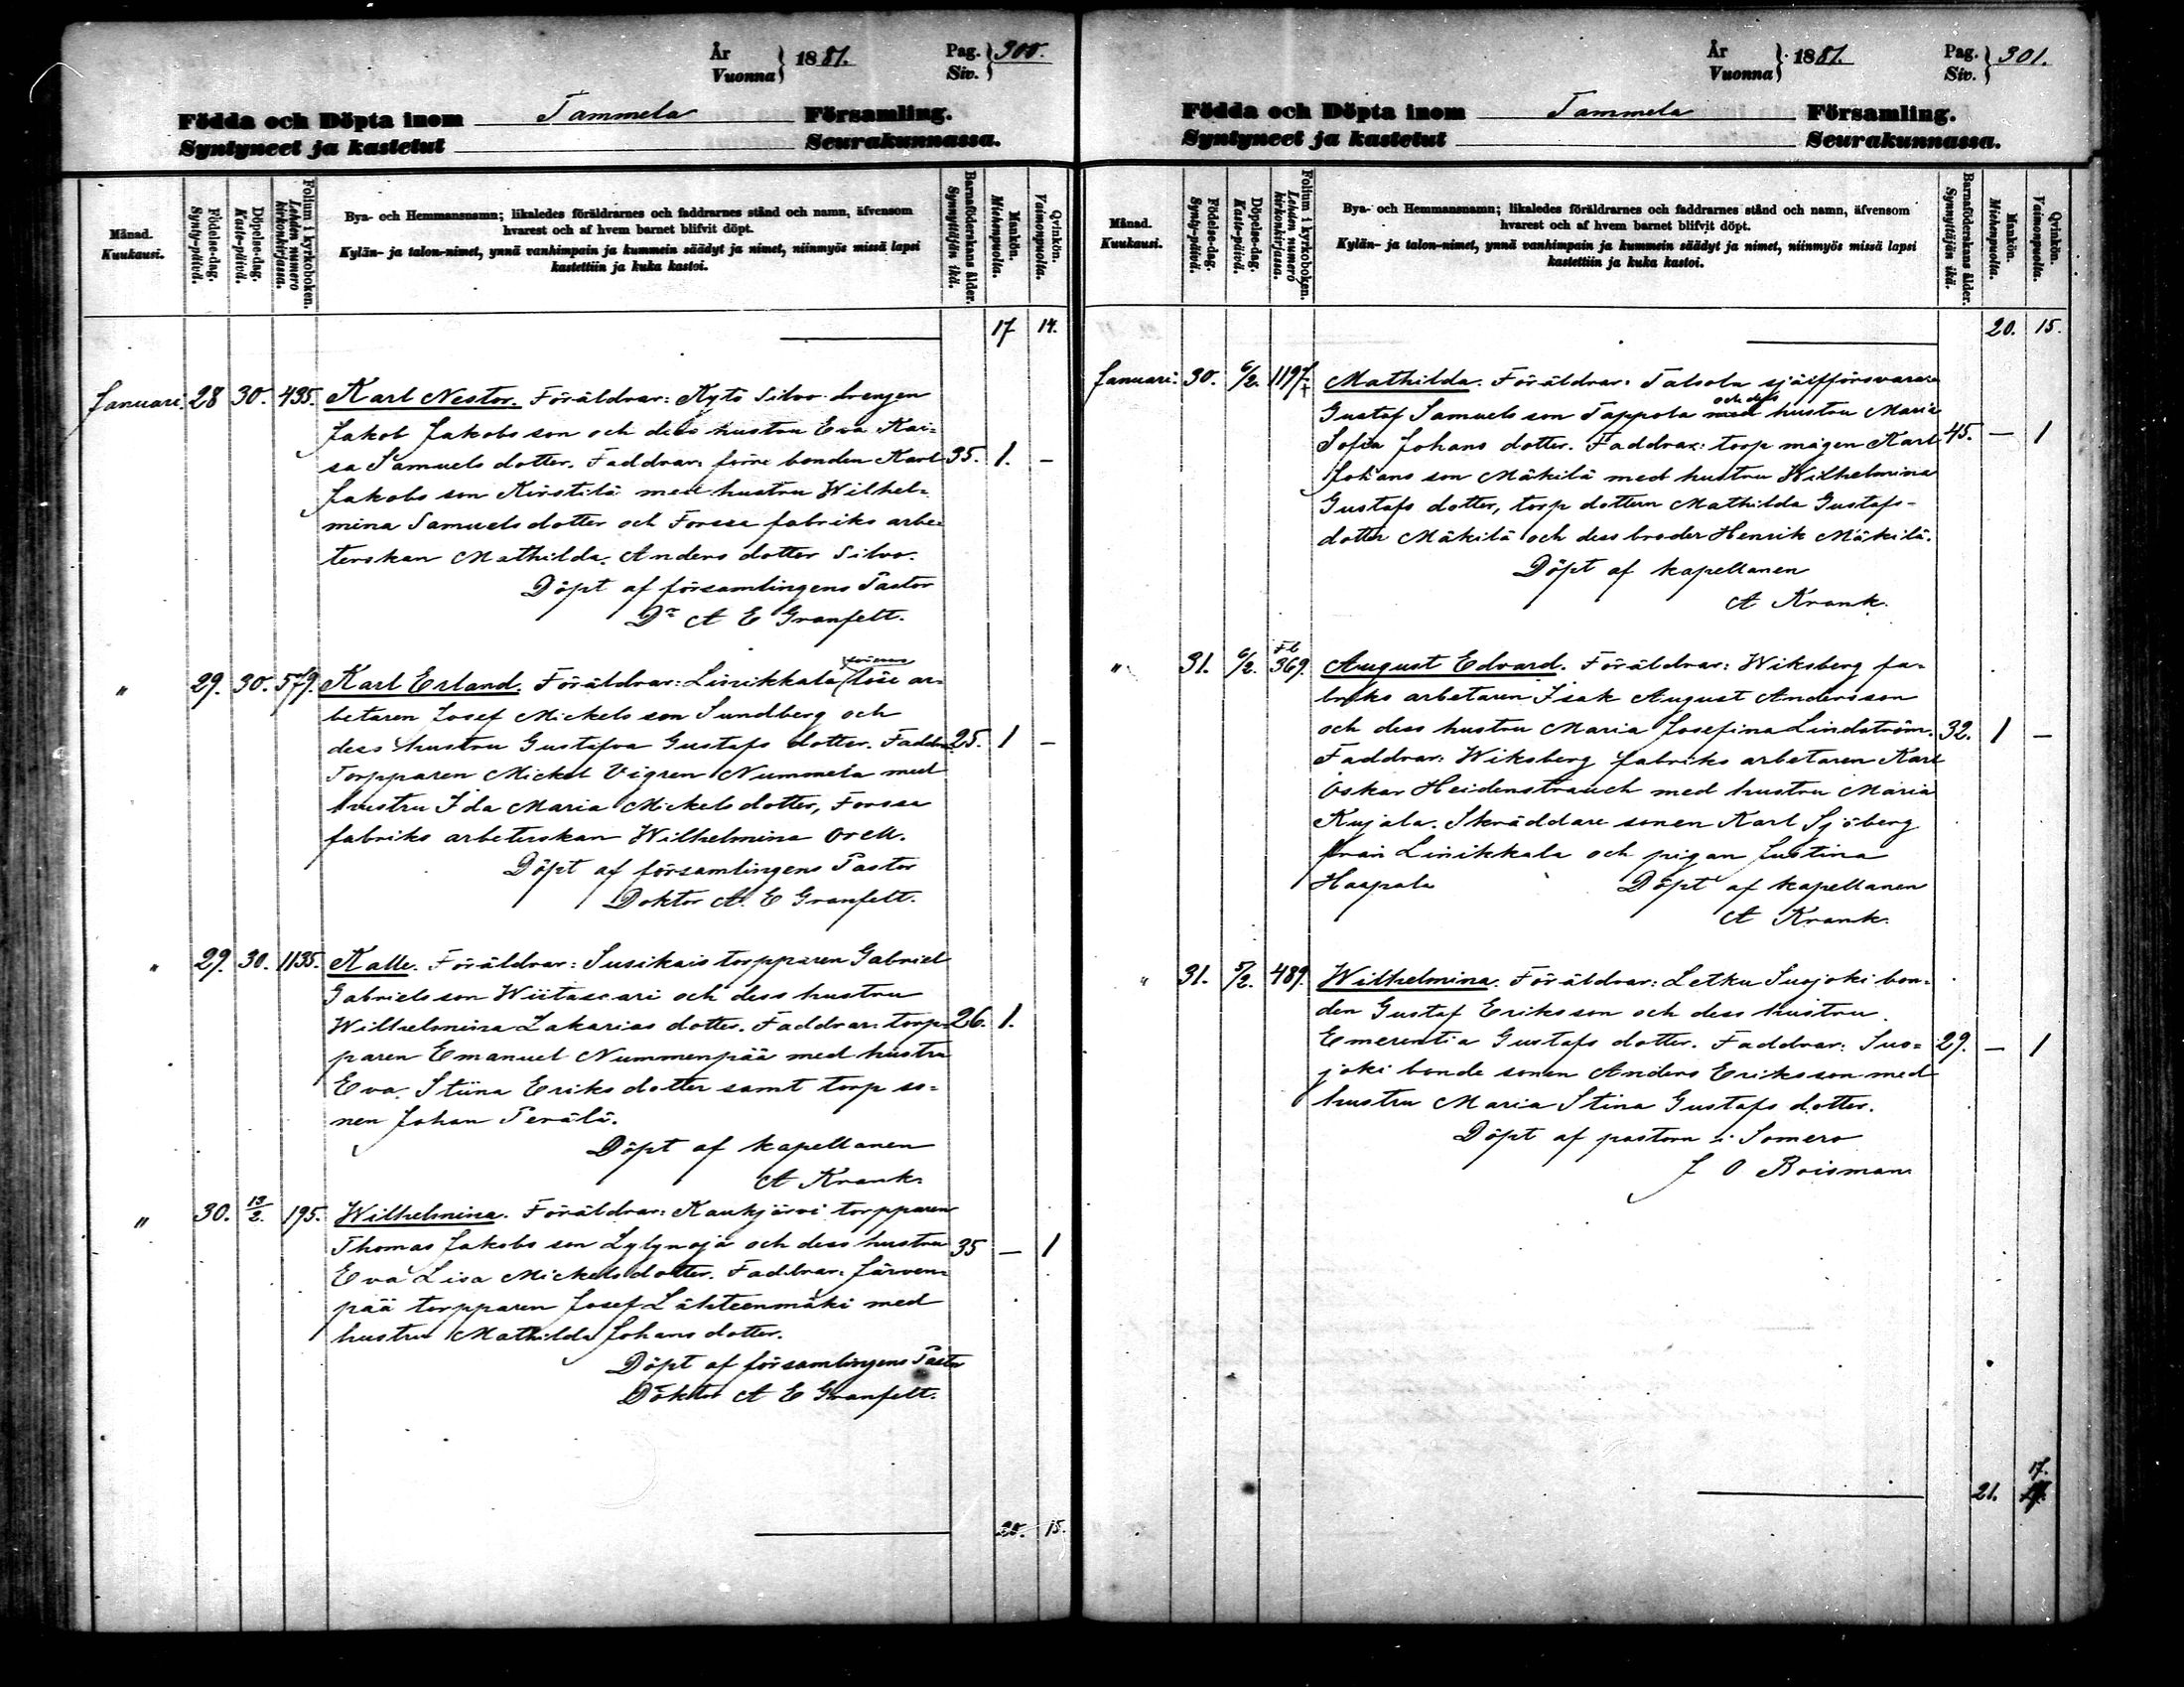 År
Vuonna } 1881.
Pag.
Siv. } 300.
Födda och Döpta inom Tammela Församling.
Syntyneet ja kastetut Seurakunnassa.
Månad.
Kuukausi.
Födelse-dag.
Synty-päivä.
Döpelse-dag.
Kaste-päivä.
Folium i kyrkoboken.
Lehden numero kirkonkirjassa.
Bya- och Hemmansnamn; likaledes föräldrarnes och faddrarnes stånd och namn, äfvensom
hvarest och af hvem barnet blifvit döpt.
Kylän- ja talon-nimet, ynnä vanhimpain ja kummein säädyt ja nimet, niinmyös missä lapsi
kastettiin ja kuka kastoi.
Barnaföderskans ålder.
Synnyttäjän ikä.
Mankön.
Miehenpuolta.
Qvinkön.
Vaimonpuolta.
17 14.
Januari. 28 30. 435. Karl Nestor. Föräldrar: Kyto Silvo drengen
Jakob Jakobs son och dess hustru Eva Kai=
sa Samuels dotter. Faddrar: förre bonden Karl 35. 1. –
Jakobs son Kirstilä med hustru Wilhel=
mina Samuels dotter och Forssa fabriks arbe=
terskan Mathilda Anders dotter Silvo.
Döpt af församlingens Pastor
Dr A E Granfelt.
" 29. 30. 579. Karl Erland. Föräldrar: Linikkala löse ar=
betaren Josef Mickels son Sundberg och
dess hustru Gustafva Gustafs dotter. Faddr. 25. 1 –
Torpparen Mickel Vigren Nummela med
hustru Ida Maria Mickels dotter, Forssa
fabriks arbeterskan Wilhelmina Orell.
Döpt af församlingens Pastor
Doktor A. E Granfelt.
" 29. 30. 1135. Kalle. Föräldrar: Susikais torpparen Gabriel
Gabriels son Wiitasaari och dess hustru
Wilhelmina Zakarias dotter. Faddrar: torp= 26. 1.
paren Emanuel Nummenpää med hustru
Eva Stiina Eriks dotter samt torp so=
nen Johan Perälä.
Döpt af kapellanen
A Krank.
" 30. 13/2. 195. Wilhelmina. Föräldrar: Kaukjärvi torpparen
Thomas Jakobs son Lylynoja och dess hustru 35 – 1
Eva Lisa Mickels dotter. Faddrar: Järven=
pää torpparen Josef Lähteenmäki med
hustru Mathilda Johans dotter.
Döpt af församlingens Pastor
Doktor A E Granfelt.
20. 15.
År
Vuonna } 1881.
Pag.
Siv. } 301.
Födda och Döpta inom Tammela Församling.
Syntyneet ja kastetut Seurakunnassa.
Månad.
Kuukausi.
Födelse-dag.
Synty-päivä.
Döpelse-dag.
Kaste-päivä.
Folium i kyrkoboken.
Lehden numero kirkonkirjassa.
Bya- och Hemmansnamn; likaledes föräldrarnes och faddrarnes stånd och namn, äfvensom
hvarest och af hvem barnet blifvit döpt.
Kylän- ja talon-nimet, ynnä vanhimpain ja kummein säädyt ja nimet, niinmyös missä lapsi
kastettiin ja kuka kastoi.
Barnaföderskans ålder.
Synnyttäjän ikä.
Mankön.
Miehenpuolta.
Qvinkön.
Vaimonpuolta.
20. 15.
Januari. 30. 6/2. 1197. Mathilda. Föräldrar: Talsola sjelfförsvarare
och dess
Gustaf Samuels son Tappola med hustru Maria
Sofia Johans dotter. Faddrar: torp mågen Karl 45. – 1
Johans son Mäkilä med hustru Wilhelmina
Gustafs dotter, torp dottern Mathilda Gustafs-
dotter Mäkilä och dess broder Henrik Mäkilä.
Döpt af kapellanen
A Krank.
" 31. 6/2. Fb 369. August Edvard. Föräldrar: Wiksberg fa=
briks arbetaren Isak August Andersson
och dess hustru Maria Josefina Lindström. 32. 1 –
Faddrar: Wiksberg fabriks arbetaren Karl
Oskar Heidenstrauch med hustru Maria
Kujala. Skräddare sonen Karl Sjöberg
från Linikkala och pigan Justina
Haapala Döpt af kapellanen
A Krank.
" 31. 5/2. 489. Wilhelmina. Föräldrar: Letku Suojoki bon=
den Gustaf Eriksson och dess hustru
Emerentia Gustafs dotter. Faddrar: Suo= 29. – 1
joki bonde sonen Anders Eriksson med
hustru Maria Stina Gustafs dotter.
Döpt af pastorn i Somero
J O Boisman
17.
21.